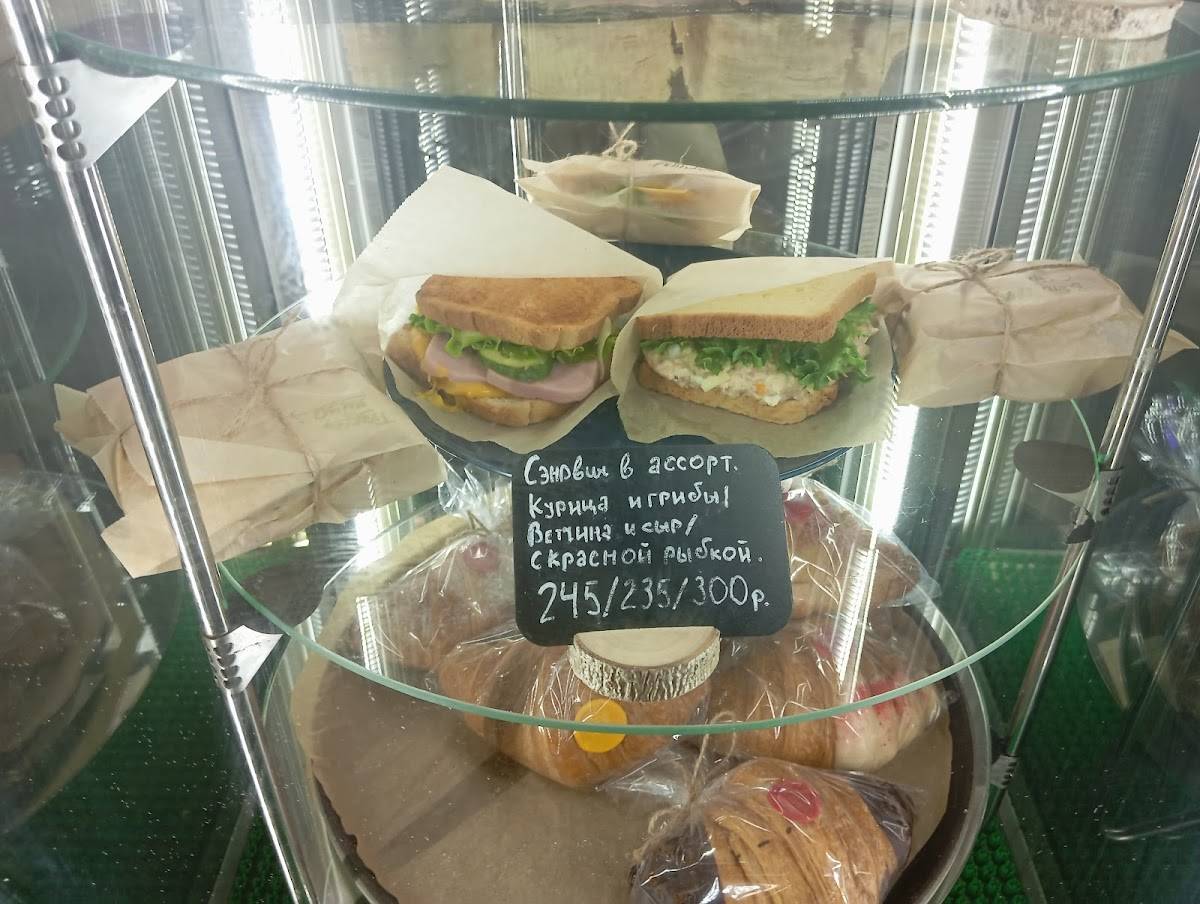 Сэндвич в ассорт.
Курица и грибы/
Ветчина и сыр/
с красной рыбкой.
245/235/300р.